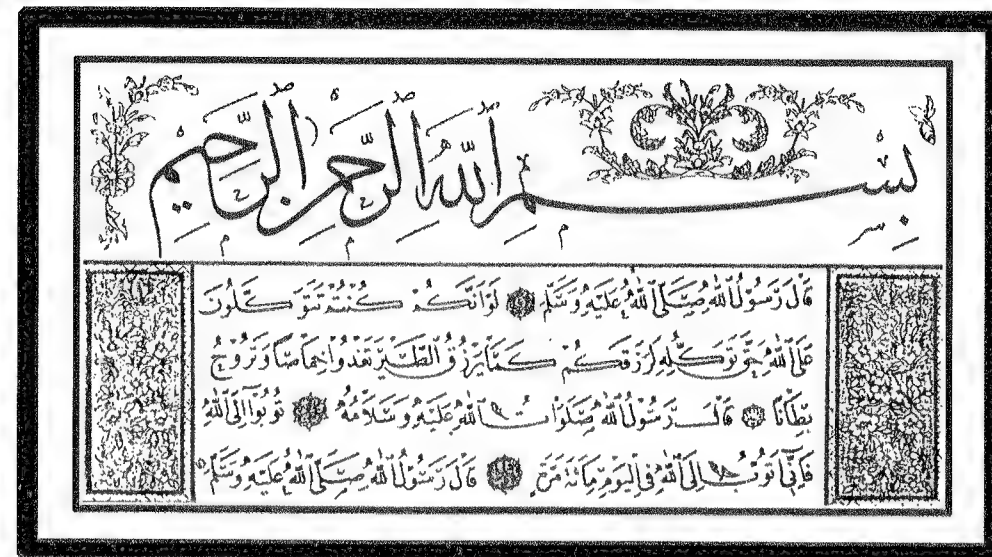 بِسْمِ اللّٰهِ الرَّحْمٰنِ الرَّحِيمِ
قَالَ رَسُولُ اللّٰهِ صَلَّى اللّٰهُ عَلَيْهِ وَسَلَّمَ لَوْ أَنَّكُمْ كُنْتُمْ تَوَكَّلُونَ
عَلَى اللّٰهِ حَقَّ تَوَكُّلِهِ لَرَزَقَكُمْ كَمَا يَرْزُقُ الطَّيْرَ تَغْدُوا خِمَاصًا وَتَرُوحُ
بِطَانًا قَالَ رَسُولُ اللّٰهِ صَلَوَاتُ اللّٰهِ عَلَيْهِ وَسَلَامُهُ تُوبُوا إِلَى اللّٰهِ
فَإِنِّي أَتُوبُ إِلَى اللّٰهِ فِي الْيَوْمِ مِائَةَ مَرَّةٍ قَالَ رَسُولُ اللّٰهِ صَلَّى اللّٰهُ عَلَيْهِ وَسَلَّمَ